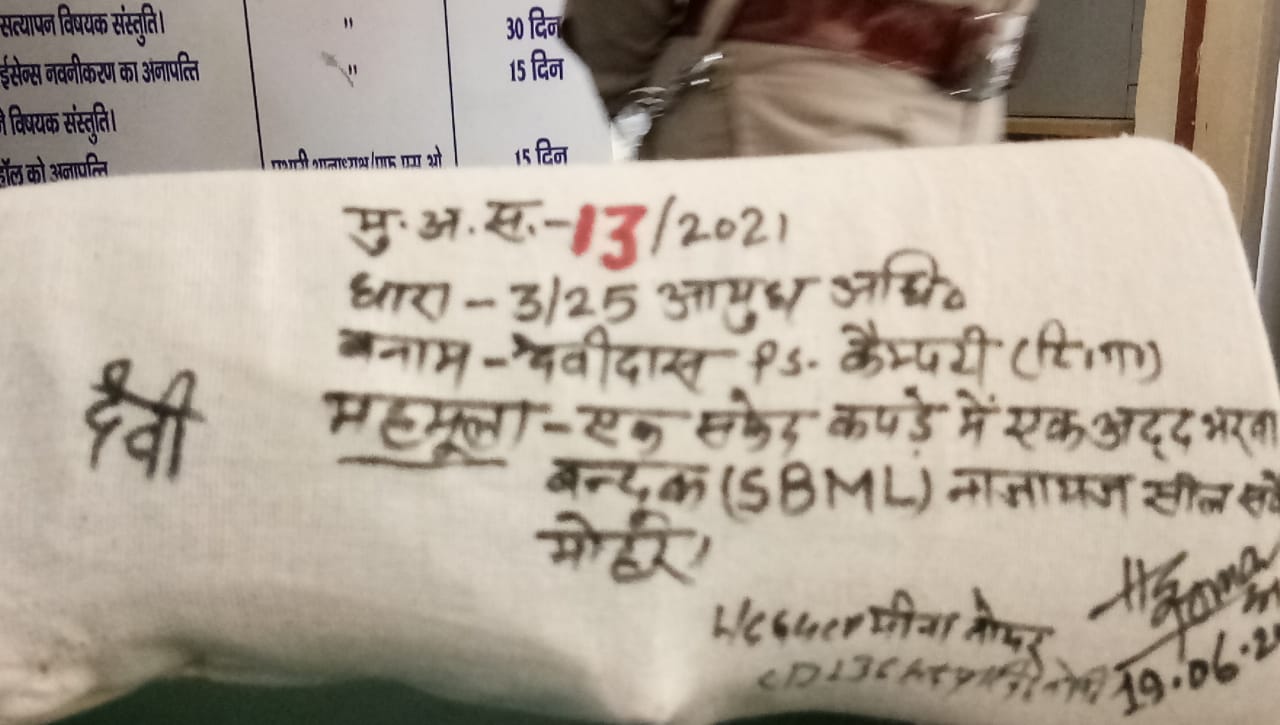 सत्यापन विषयक संस्तुति। " 30 दिन
ईसेन्स नवनीकरण का अनापत्ति " 15 दिन
विषयक संस्तुति।
हॉल को अनापत्ति 15 दिन
मु. अ. स. - 13/2021
धारा - 3/25 आयुध अधि०
बनाम - देवीदास P.S. कैम्पटी (टि.ग)
देवी
महमूला - एक सफेद कपड़े में एक अदद भरवा
बन्दूक (SBML) नाजायज सील सर्वे
मोहर।
मीना तोमर
19.06.2